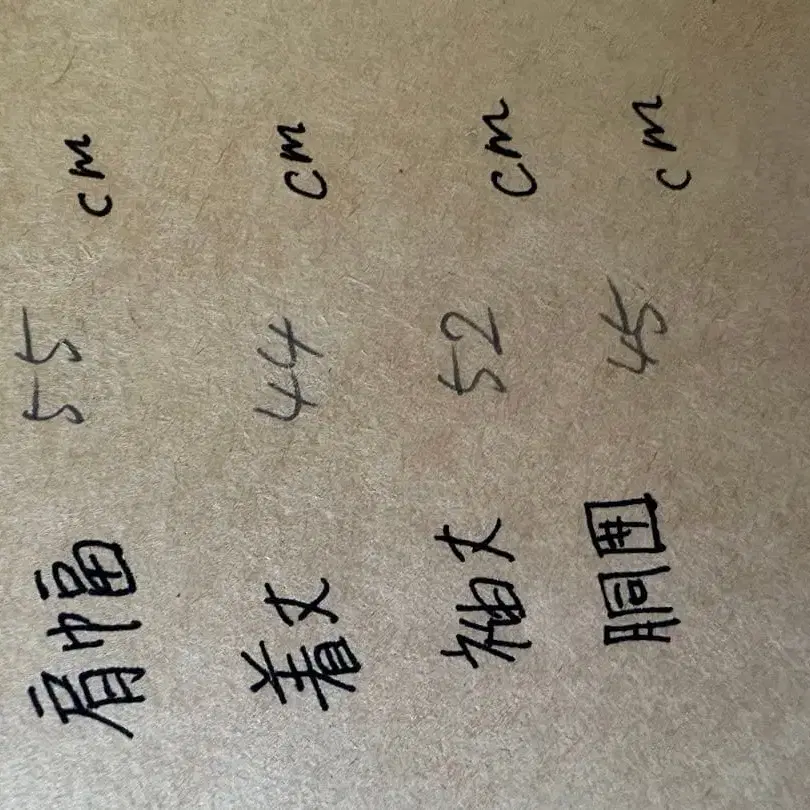 肩幅 55 cm
着丈 44 cm
袖丈 52 cm
胴囲 45 cm